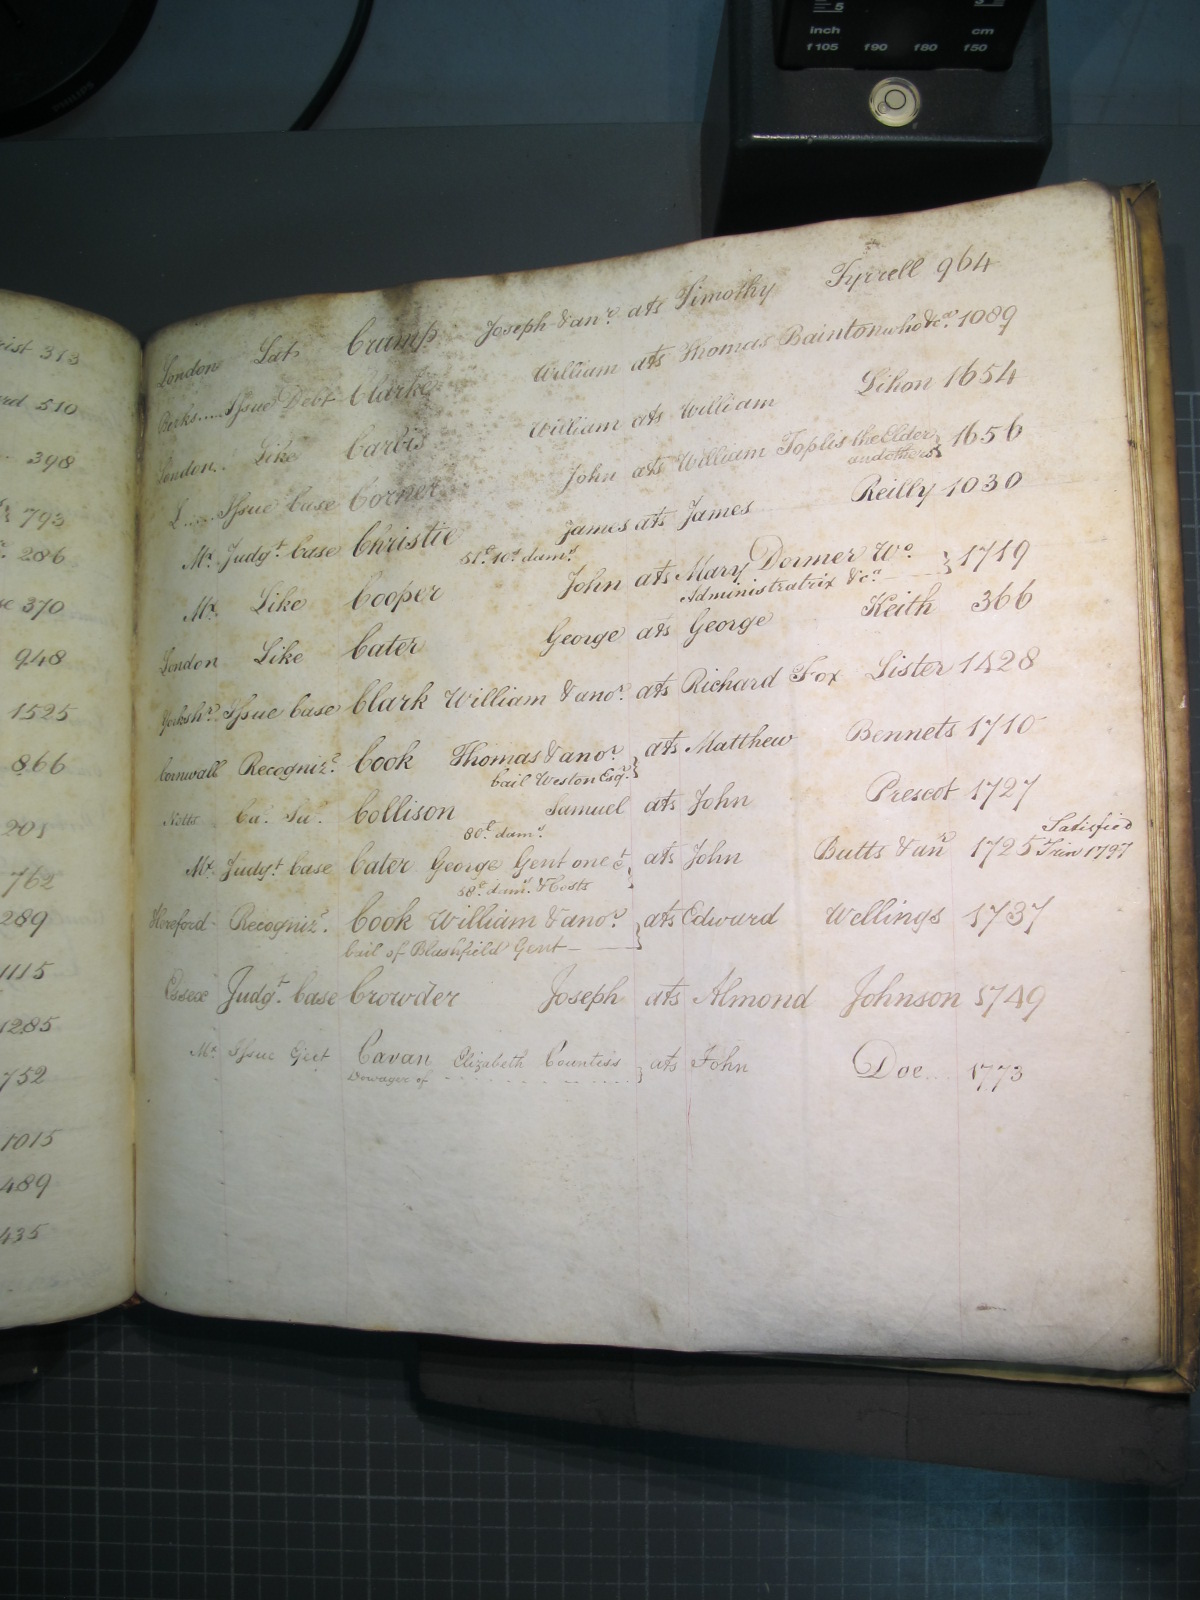 5
inch
cm
f105 f90 f80 f50
PHILIPS
313
510
398
793
286
370
948
1525
866
201
762
289
1115
1285
752
1015
489
435
London Sat. Crump Joseph & anr. ats Timothy Tyrrell 964
Berks..... Issue Debt Clarke William ats Thomas Bainton who &ca. 1089
London.. Like Carvis William ats William Likon 1654
L..... Issue Case Corner John ats William Toplis the Elder and others } 1656
Mx. Judgt. Case Christie James ats James Reilly 1030
51£. 10s. dams.
Mx. Like Cooper John ats Mary Dormer Wo. } 1719
Administratrix &ca.
London Like Cater George ats George Keith 366
Yorksh. Issue Case Clark William & anor. ats Richard Fox Lister 1428
Cornwall Recogniz. Cook Thomas & anor. } ats Matthew Bennets 1710
bail Weston Esqr.
Notts Ca. Sa. Collison Samuel ats John Prescot 1727
80£. dams. Satisfied
Mx. Judgt. Case Cater George Gent one &c. } ats John Butts & anr 1725 Trin 1797
58£. dams. & Costs
Hereford Recogniz. Cook William & anor. } ats Edward Wellings 1737
bail of Blushfield Gent
Essex Judgt. Case Crowder Joseph ats Almond Johnson 1749
Mx. Issue Eject Cavan Elizabeth Countess } ats John Doe... 1773
Dowager of